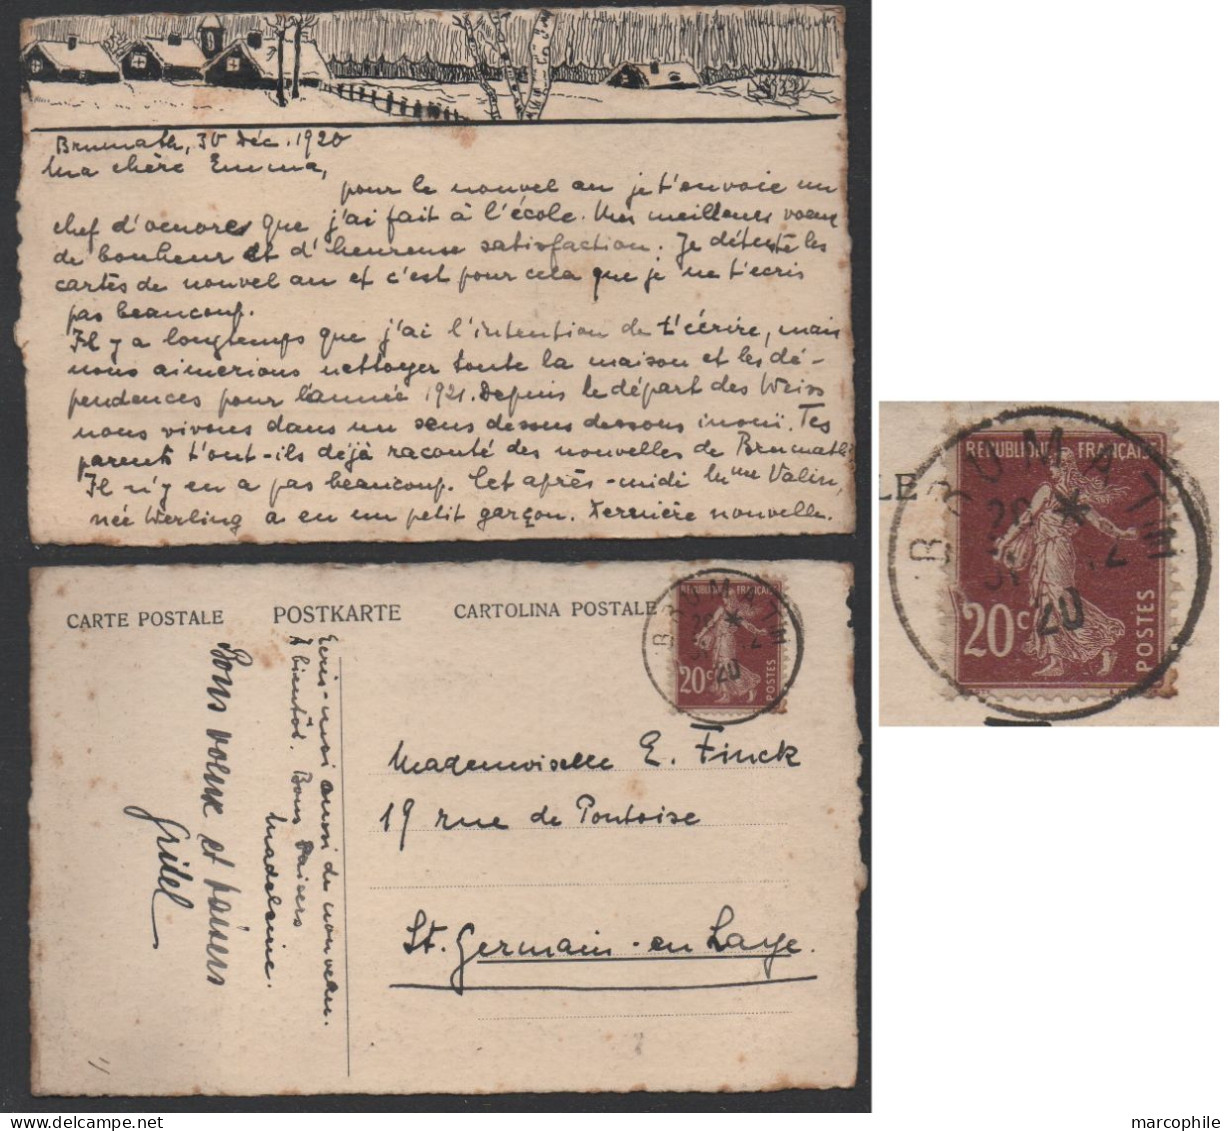 Brumath, 30 Déc. 1920
Ma chère Emma,
pour le nouvel an je t'envoie un
chef d'oeuvres que j'ai fait à l'école. Mes meilleures voeux
de bonheur et d'heureuse satisfaction. Je déteste les
cartes de nouvel an et c'est pour cela que je ne t'ecris
pas beaucoup.
Il y a longtemps que j'ai l'intention de t'écrire, mais
nous aimerions nettoyer toute la maison et les dé-
pendences pour l'année 1921. Depuis le départ des Weiss
nous vivons dans un sens dessus dessous inouï. Tes
parents t'ont-ils déjà raconté des nouvelles de Brumath?
Il n'y en a pas beaucoup. Cet après-midi Mme Valin,
née Werling a eu un petit garçon. Dernière nouvelle.
CARTE POSTALE POSTKARTE CARTOLINA POSTALE
Ecris-moi aussi du nouveau.
A bientôt. Bons baisers
Madeleine.
Bons voeux et baisers
Gridel
REPUBLIQUE FRANÇAISE
20c
POSTES
BRUMATH
20 *
31 12
20
Mademoiselle E. Finck
19 rue de Pontoise
St. Germain-en Laye.
LE
REPUBLIQUE FRANÇAISE
20c
POSTES
BRUMATH
20 *
31 12
20
marcophile